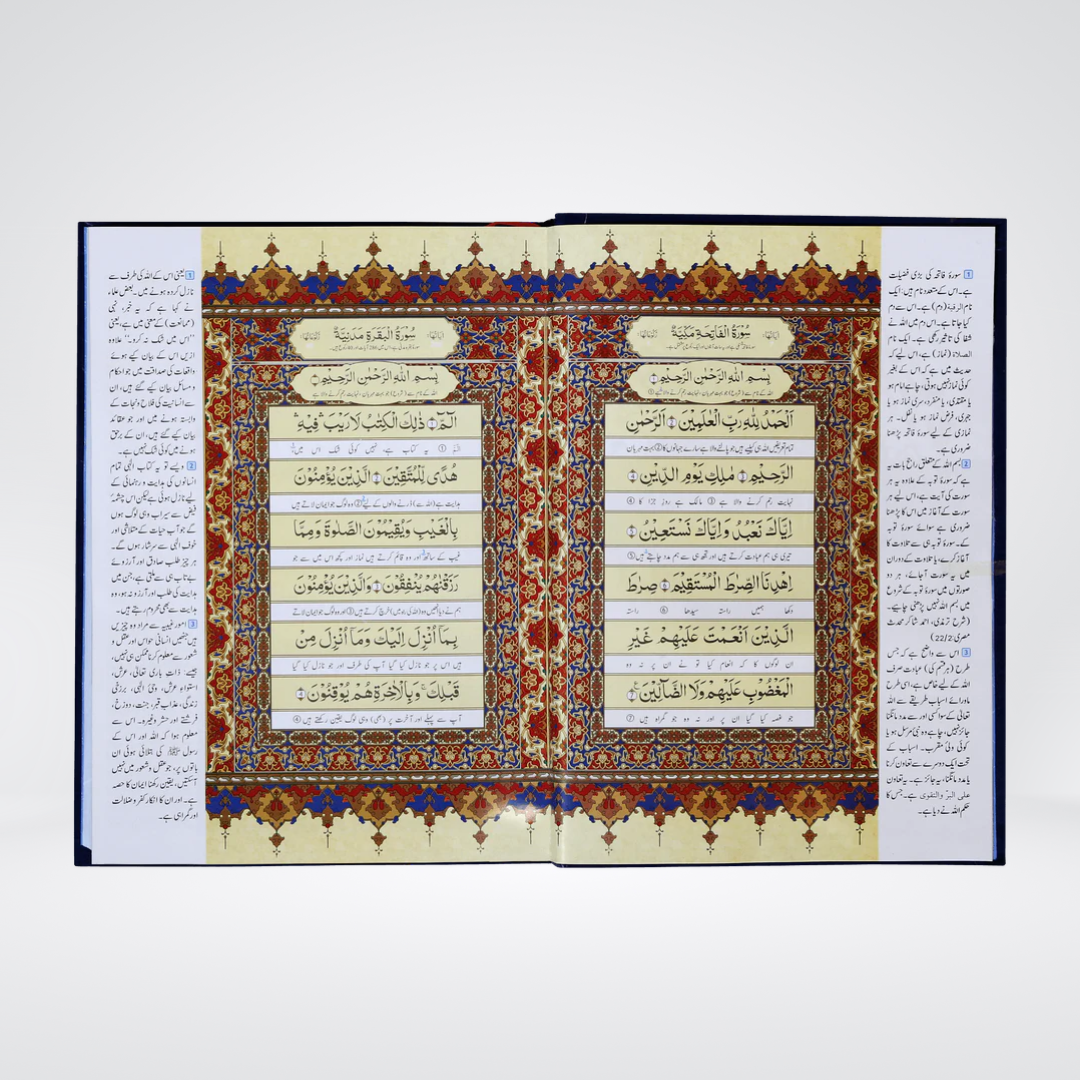 سُوْرَةُ الْفَاتِحَةِ مَكِّيَّةٌ
بِسْمِ اللّٰهِ الرَّحْمٰنِ الرَّحِيْمِ ①
اَلْحَمْدُ لِلّٰهِ رَبِّ الْعٰلَمِيْنَ ② الرَّحْمٰنِ
الرَّحِيْمِ ③ مٰلِكِ يَوْمِ الدِّيْنِ ④
نہایت رحم کرنے والا ہے ③ مالک ہے روز جزا کا ④
اِيَّاكَ نَعْبُدُ وَاِيَّاكَ نَسْتَعِيْنُ ⑤
تیری ہی ہم عبادت کرتے ہیں اور تجھ ہی سے ہم مدد چاہتے ہیں ⑤
اِهْدِنَا الصِّرَاطَ الْمُسْتَقِيْمَ ⑥ صِرَاطَ
دکھا ہمیں راستہ سیدھا ⑥ راستہ
الَّذِيْنَ اَنْعَمْتَ عَلَيْهِمْ غَيْرِ
ان لوگوں کا کہ انعام کیا تو نے ان پر نہ وہ
الْمَغْضُوْبِ عَلَيْهِمْ وَلَا الضَّآلِّيْنَ ⑦
جو غصہ کیا گیا ان پر اور نہ وہ جو گمراہ ہیں ⑦
1 سورۂ فاتحہ کی بڑی فضیلت
ہے۔ اس کے متعدد نام ہیں: ایک
نام الرقیۃ (دم) ہے۔ اس سے دم
کیا جاتا ہے۔ اس دم میں اللہ نے
شفا کی تاثیر رکھی ہے۔ ایک نام
الصلاة (نماز) ہے، اس لیے کہ
حدیث میں ہے کہ اس کے بغیر
کوئی نماز نہیں ہوتی، چاہے امام ہو
یا مقتدی، یا منفرد، سری نماز ہو یا
جہری، فرض نماز ہو یا نفل۔ ہر
نمازی کے لیے سورۂ فاتحہ پڑھنا
ضروری ہے۔
2 بسم اللہ کے متعلق راجح بات یہ
ہے کہ سورۂ توبہ کے علاوہ یہ ہر
سورت کی آیت ہے، اس لیے ہر
سورت کے آغاز میں اس کا پڑھنا
ضروری ہے سوائے سورۂ توبہ
کے۔ سورۂ توبہ ہی سے تلاوت کا
آغاز کرے، یا تلاوت کے دوران
میں یہ سورت آجائے، ہر دو
صورتوں میں سورۂ توبہ کے شروع
میں بسم اللہ نہیں پڑھنی چاہیے۔
(شرح ترمذی، احمد شاکر محدث
مصری: 22/2)
3 اس سے واضح ہے کہ جس
طرح (ہر قسم کی) عبادت صرف
اللہ کے لیے خاص ہے، اسی طرح
ماورائے اسباب طریقے سے اللہ
تعالیٰ کے سوا کسی اور سے مدد مانگنا
جائز نہیں، چاہے وہ نبی مرسل ہو یا
کوئی ولی مقرب۔ اسباب کے
تحت ایک دوسرے سے تعاون کرنا
یا مدد مانگنا، یہ جائز ہے۔ یہ تعاون
علی البرّ والتقوی ہے۔ جس کا
حکم اللہ نے دیا ہے۔
سُوْرَةُ الْبَقَرَةِ مَدَنِيَّةٌ
بِسْمِ اللّٰهِ الرَّحْمٰنِ الرَّحِيْمِ
الٓمّٓ ① ذٰلِكَ الْكِتٰبُ لَا رَيْبَ فِيْهِ
الٓمّٓ ① یہ کتاب ہے، نہیں کوئی شک اس میں
هُدًى لِّلْمُتَّقِيْنَ ② الَّذِيْنَ يُؤْمِنُوْنَ
ہدایت ہے (اللہ سے) ڈرنے والوں کے لیے ② وہ لوگ جو ایمان لاتے ہیں
بِالْغَيْبِ وَيُقِيْمُوْنَ الصَّلٰوةَ وَمِمَّا
غیب کے ساتھ اور وہ قائم کرتے ہیں نماز اور کچھ اس میں سے جو
رَزَقْنٰهُمْ يُنْفِقُوْنَ ③ وَالَّذِيْنَ يُؤْمِنُوْنَ
ہم نے دیا انھیں وہ (اللہ کی راہ میں) خرچ کرتے ہیں ③ اور وہ لوگ جو ایمان لاتے
بِمَآ اُنْزِلَ اِلَيْكَ وَمَآ اُنْزِلَ مِنْ
ہیں اس پر جو نازل کیا گیا آپ کی طرف اور جو نازل کیا گیا
قَبْلِكَ ۚ وَبِالْاٰخِرَةِ هُمْ يُوْقِنُوْنَ ④
آپ سے پہلے اور آخرت پر (بھی) وہی لوگ یقین رکھتے ہیں ④
1 یعنی اس کے اللہ کی طرف سے
نازل کردہ ہونے میں۔ بعض علماء
نے کہا ہے کہ یہ خبر، نہی
(ممانعت) کے معنی میں ہے، یعنی
"اس میں شک نہ کرو۔" علاوہ
ازیں اس کے بیان کیے ہوئے
واقعات کی صداقت میں جو احکام
و مسائل بیان کیے گئے ہیں، ان
سے انسانیت کی فلاح و نجات کے
وابستہ ہونے میں اور جو عقائد
بیان کیے گئے ہیں، ان کے برحق
ہونے میں کوئی شک نہیں ہے۔
2 ویسے تو یہ کتاب الٰہی تمام
انسانوں کی ہدایت و رہنمائی کے
لیے نازل ہوئی ہے لیکن اس چشمۂ
فیض سے سیراب وہی لوگ ہوں
گے جو آب حیات کے متلاشی اور
خوف الٰہی سے سرشار ہوں گے۔
ہر چیز طلب صادق اور آرزوئے
بے تاب ہی سے ملتی ہے، جن میں
ہدایت کی طلب اور آرزو نہ ہو، وہ
ہدایت سے بھی محروم رہتے ہیں۔
3 امور غیبیہ سے مراد وہ چیزیں
ہیں جنھیں انسانی حواس اور عقل و
شعور سے معلوم کرنا ممکن ہی نہیں،
جیسے: ذات باری تعالیٰ، عرش،
استواء عرش، وحی الٰہی، برزخی
زندگی، عذاب قبر، جنت، دوزخ،
فرشتے اور حشر وغیرہ۔ اس سے
معلوم ہوا کہ اللہ اور اس کے
رسول ﷺ کی بتلائی ہوئی ان
باتوں پر، جو عقل و شعور میں نہیں
آسکتیں، یقین رکھنا ایمان کا حصہ
ہے۔ اور ان کا انکار کفر و ضلالت
اور گمراہی ہے۔